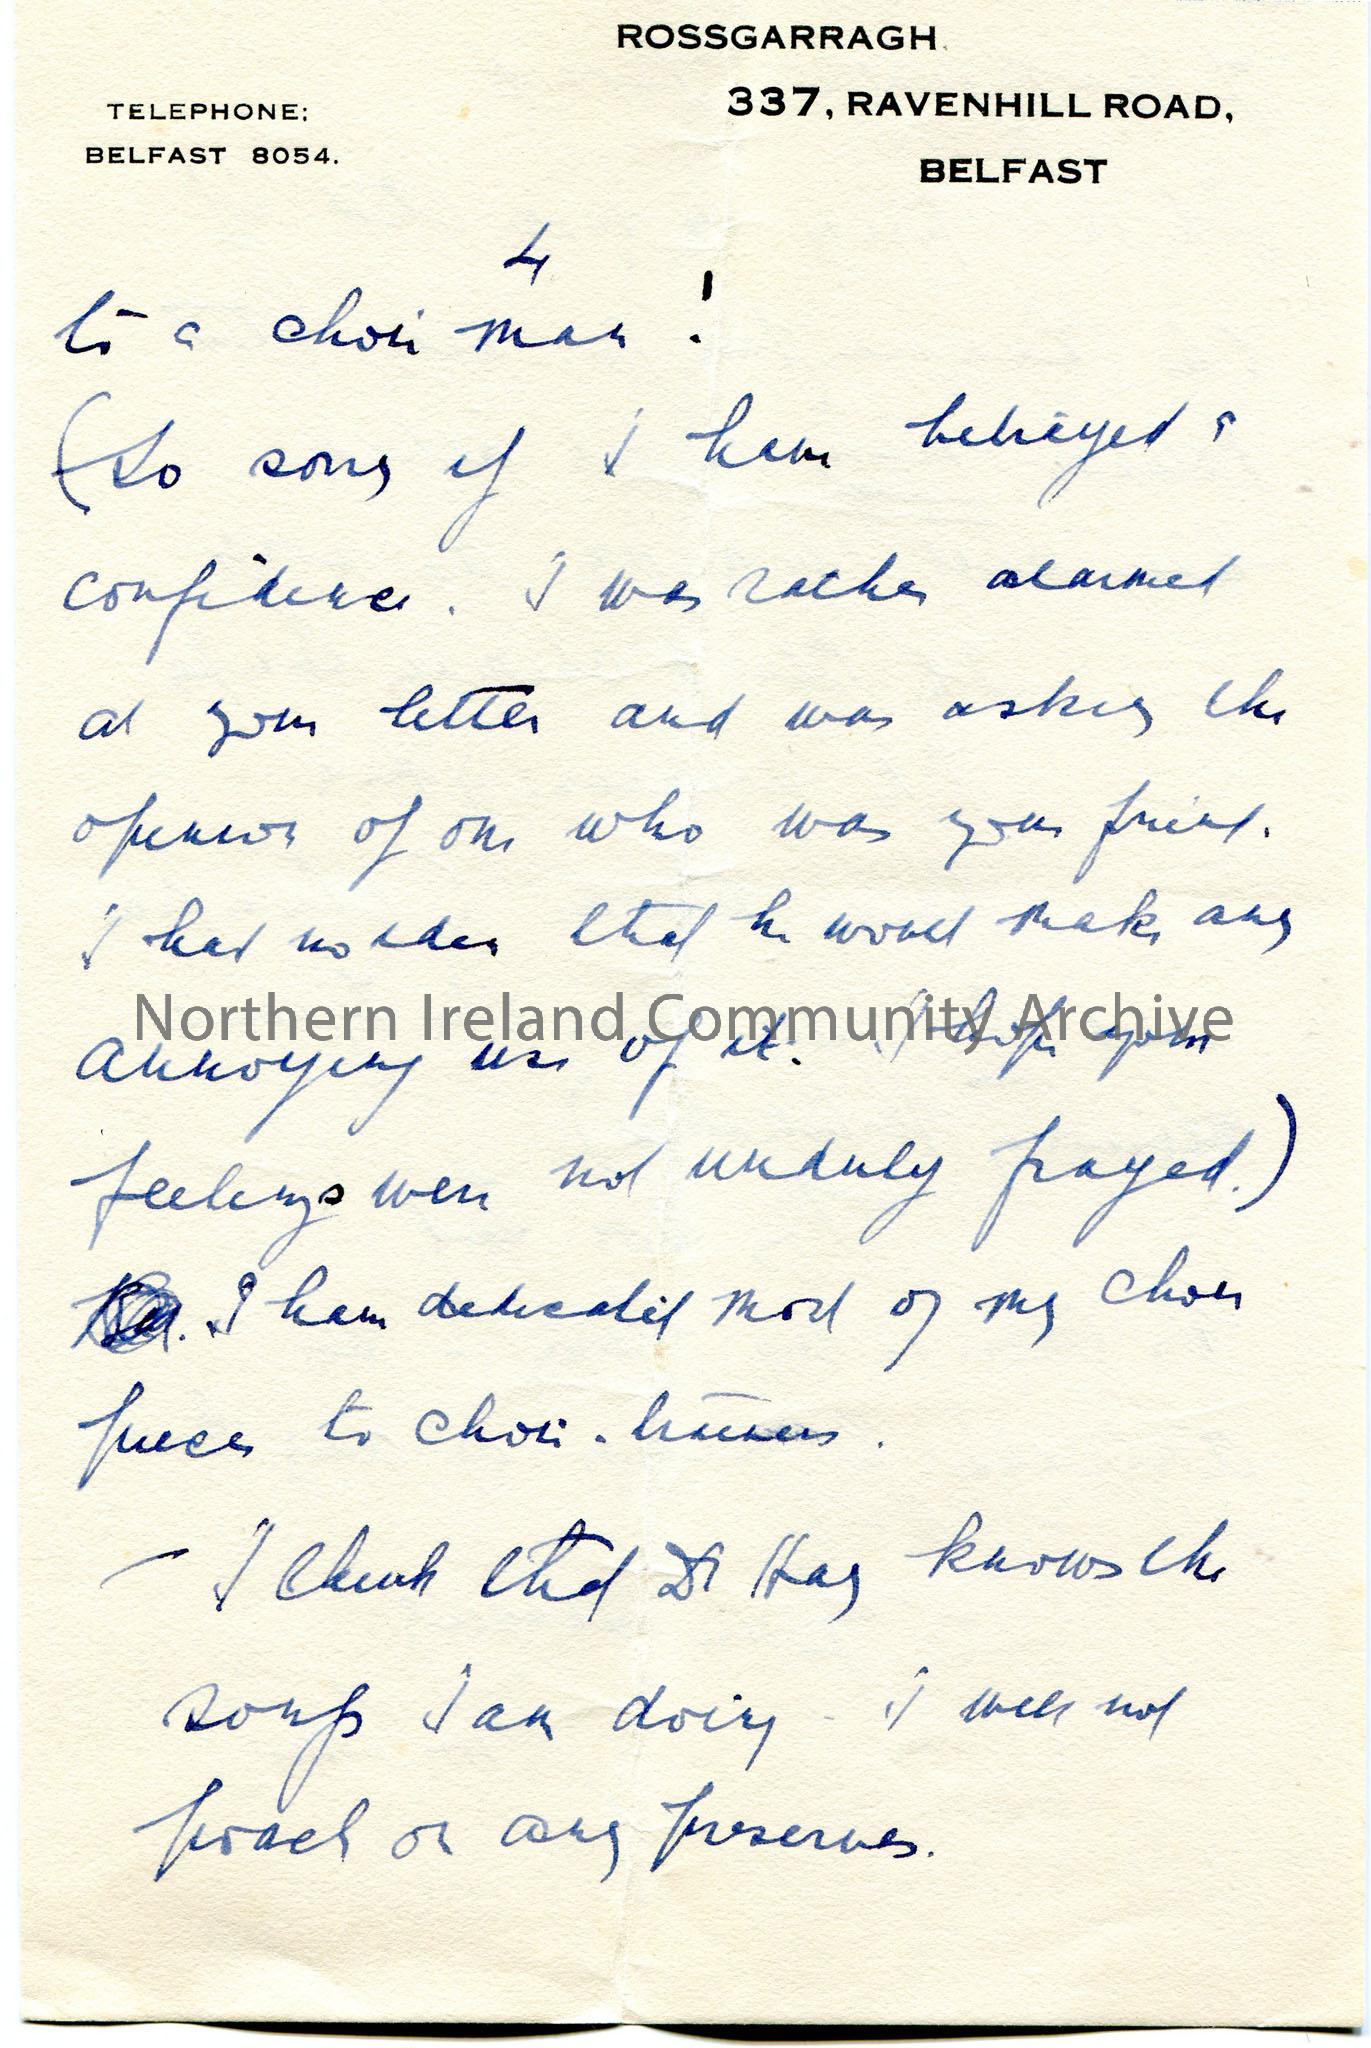 ROSSGARRAGH
337, RAVENHILL ROAD,
BELFAST
TELEPHONE:
BELFAST 8054.
4
to a choir man !
(So sorry if I have betrayed a
confidence. I was rather alarmed
at your letter and was asking the
opinion of one who was your friend.
I had no idea that he would make any
annoying use of it. I hope your
feelings were not unduly frayed.)
I have dedicated most of my choir
pieces to choir-trainers.
— I think that Dr Hay knows the
songs I am doing - I will not
poach on any preserves.
Northern Ireland Community Archive